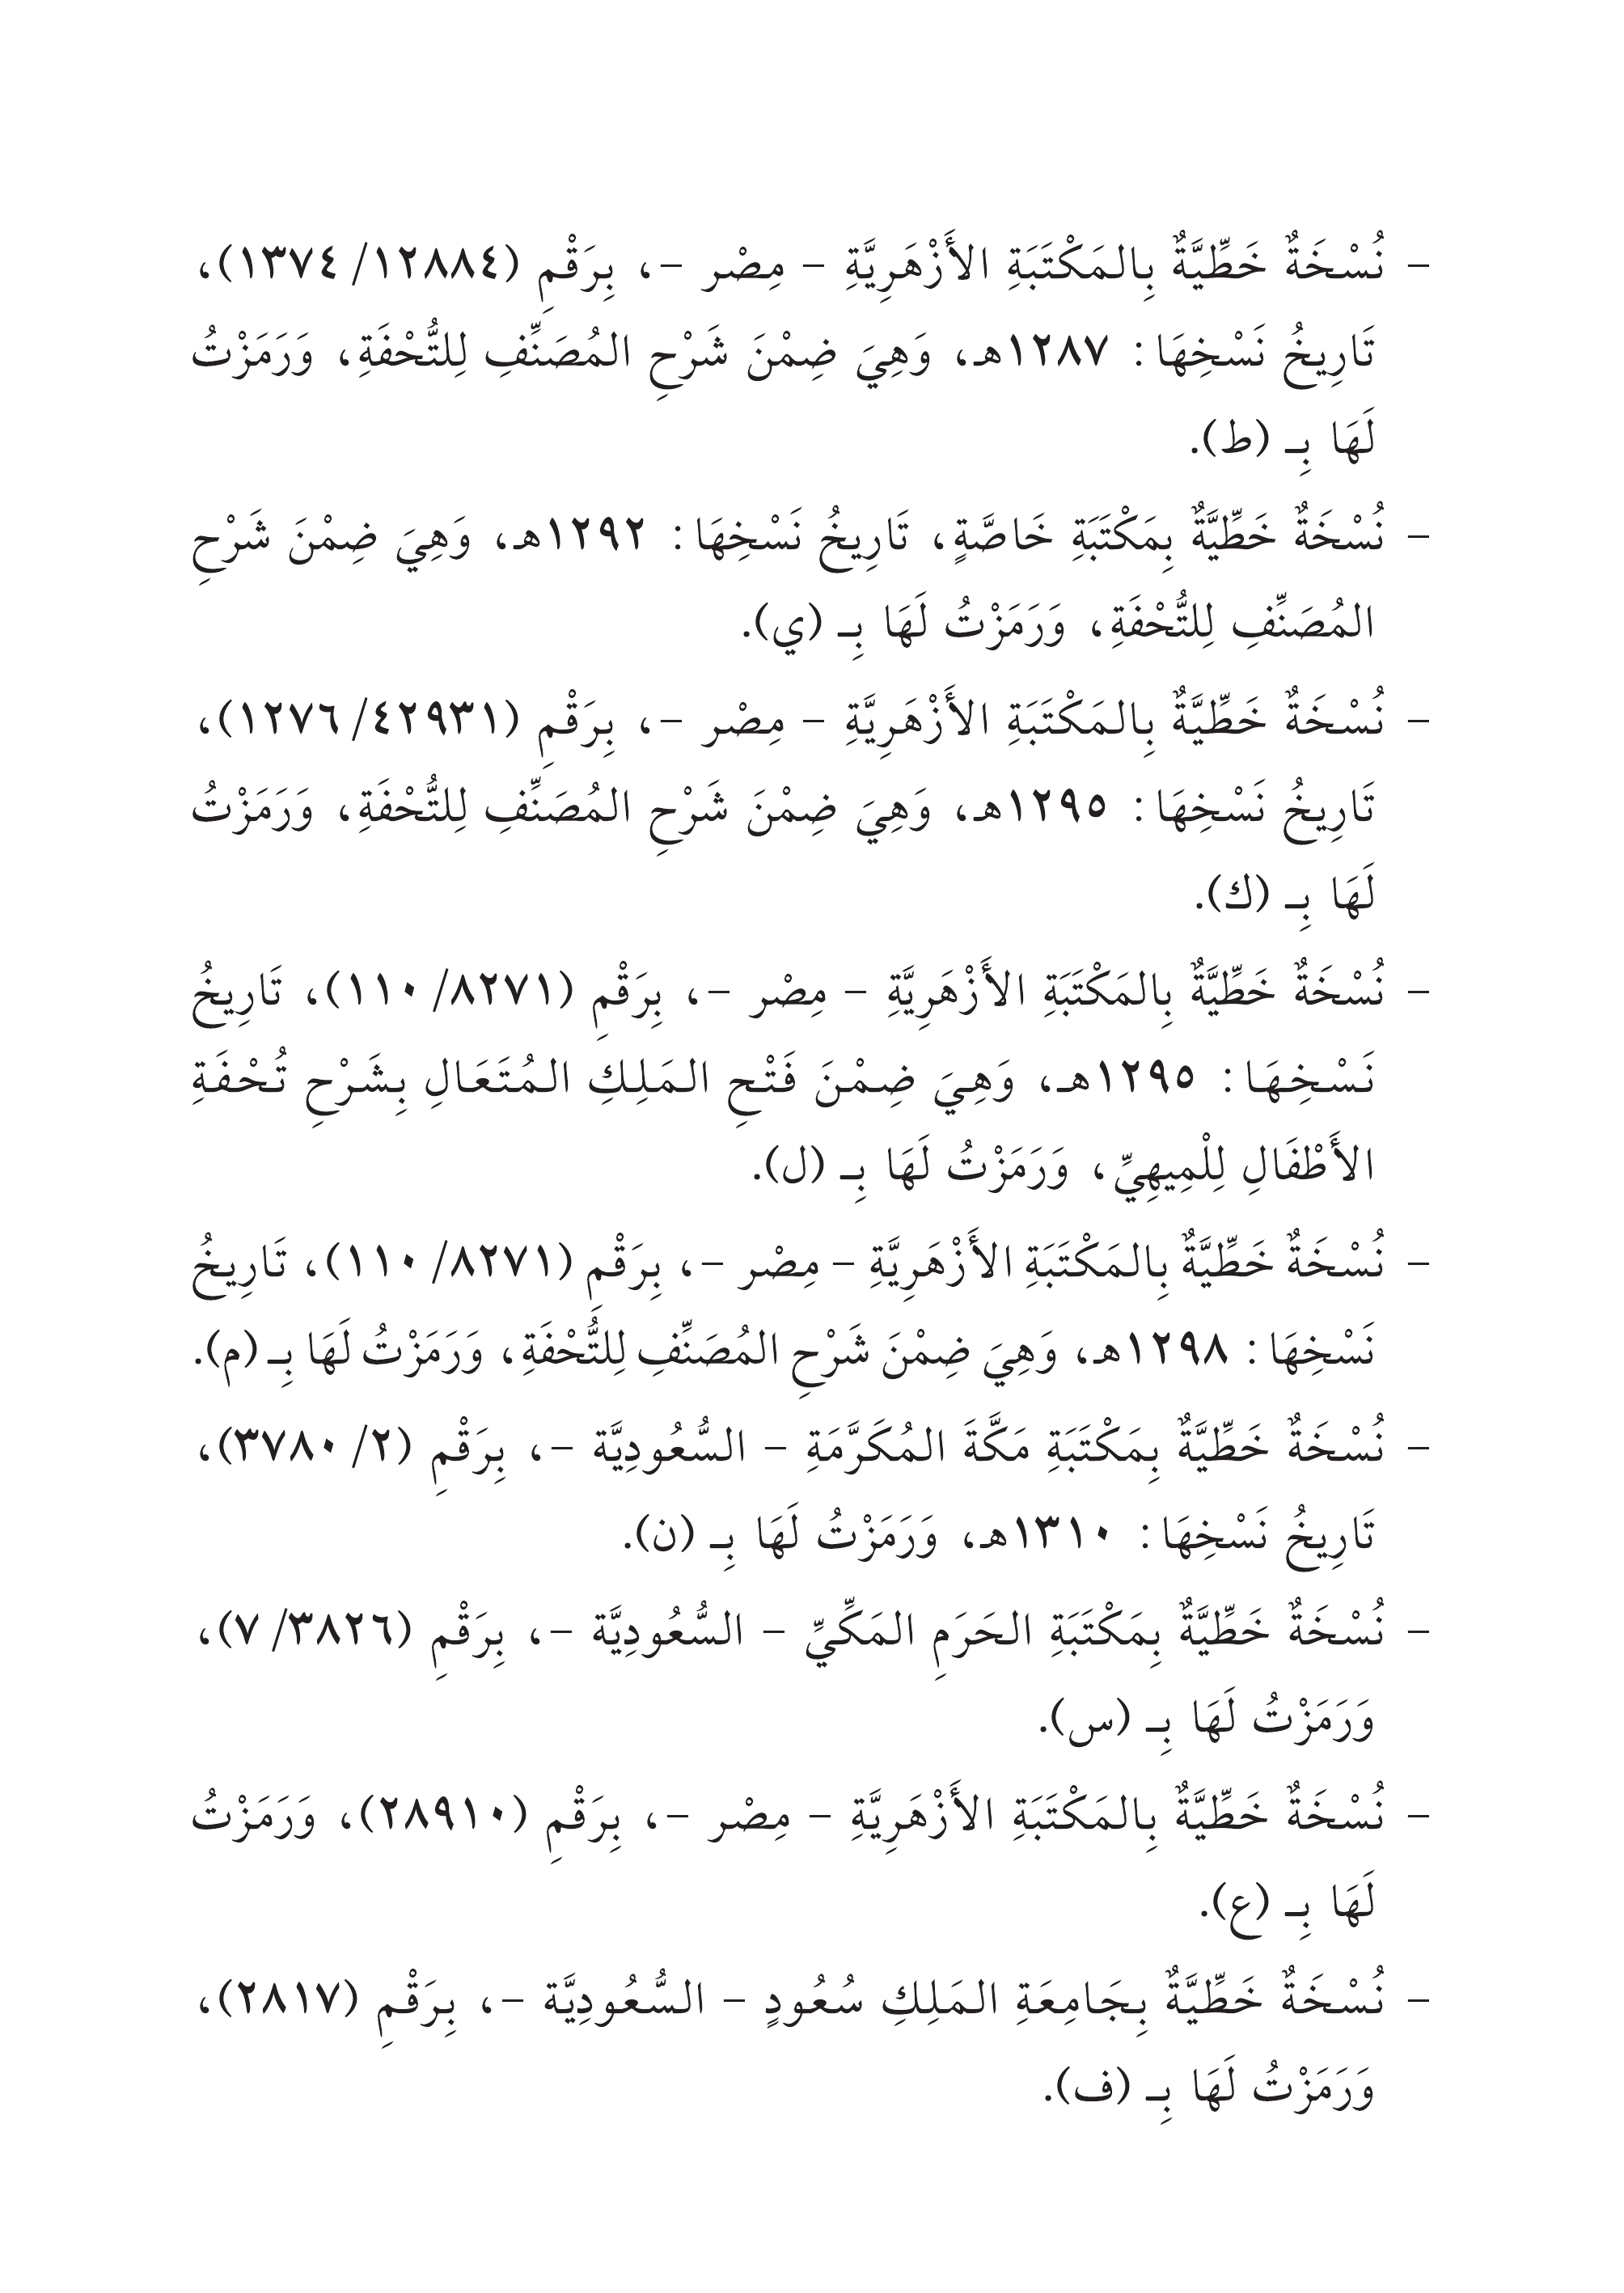 - نُسْخَةٌ خَطِّيَّةٌ بِالمَكْتَبَةِ الأَزْهَرِيَّةِ - مِصْر -، بِرَقْمِ (١٢٨٨٤/ ١٣٧٤)،
تَارِيخُ نَسْخِهَا: ١٢٨٧هـ، وَهِيَ ضِمْنَ شَرْحِ المُصَنِّفِ لِلتُّحْفَةِ، وَرَمَزْتُ
لَهَا بِـ (ط).
- نُسْخَةٌ خَطِّيَّةٌ بِمَكْتَبَةِ خَاصَّةٍ، تَارِيخُ نَسْخِهَا: ١٢٩٢هـ، وَهِيَ ضِمْنَ شَرْحِ
المُصَنِّفِ لِلتُّحْفَةِ، وَرَمَزْتُ لَهَا بِـ (ي).
- نُسْخَةٌ خَطِّيَّةٌ بِالمَكْتَبَةِ الأَزْهَرِيَّةِ - مِصْر -، بِرَقْمِ (٤٢٩٣١/ ١٢٧٦)،
تَارِيخُ نَسْخِهَا: ١٢٩٥هـ، وَهِيَ ضِمْنَ شَرْحِ المُصَنِّفِ لِلتُّحْفَةِ، وَرَمَزْتُ
لَهَا بِـ (ك).
- نُسْخَةٌ خَطِّيَّةٌ بِالمَكْتَبَةِ الأَزْهَرِيَّةِ - مِصْر -، بِرَقْمِ (٨٢٧١/ ١١٠)، تَارِيخُ
نَسْخِهَا: ١٢٩٥هـ، وَهِيَ ضِمْنَ فَتْحِ المَلِكِ المُتَعَالِ بِشَرْحِ تُحْفَةِ
الأَطْفَالِ لِلْمِيهِيِّ، وَرَمَزْتُ لَهَا بِـ (ل).
- نُسْخَةٌ خَطِّيَّةٌ بِالمَكْتَبَةِ الأَزْهَرِيَّةِ - مِصْر -، بِرَقْمِ (٨٢٧١/ ١١٠)، تَارِيخُ
نَسْخِهَا: ١٢٩٨هـ، وَهِيَ ضِمْنَ شَرْحِ المُصَنِّفِ لِلتُّحْفَةِ، وَرَمَزْتُ لَهَا بِـ (م).
- نُسْخَةٌ خَطِّيَّةٌ بِمَكْتَبَةِ مَكَّةَ المُكَرَّمَةِ - السُّعُودِيَّة -، بِرَقْمِ (٢/ ٣٧٨٠)،
تَارِيخُ نَسْخِهَا: ١٣١٠هـ، وَرَمَزْتُ لَهَا بِـ (ن).
- نُسْخَةٌ خَطِّيَّةٌ بِمَكْتَبَةِ الحَرَمِ المَكِّيِّ - السُّعُودِيَّة -، بِرَقْمِ (٣٨٢٦/ ٧)،
وَرَمَزْتُ لَهَا بِـ (س).
- نُسْخَةٌ خَطِّيَّةٌ بِالمَكْتَبَةِ الأَزْهَرِيَّةِ - مِصْر -، بِرَقْمِ (٢٨٩١٠)، وَرَمَزْتُ
لَهَا بِـ (ع).
- نُسْخَةٌ خَطِّيَّةٌ بِجَامِعَةِ المَلِكِ سُعُودٍ - السُّعُودِيَّة -، بِرَقْمِ (٢٨١٧)،
وَرَمَزْتُ لَهَا بِـ (ف).